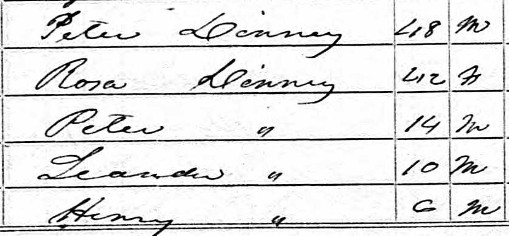 Peter Dinney 48 M
Rosa Dinney 42 F
Peter " 14 M
Leander " 10 M
Henry " 6 M